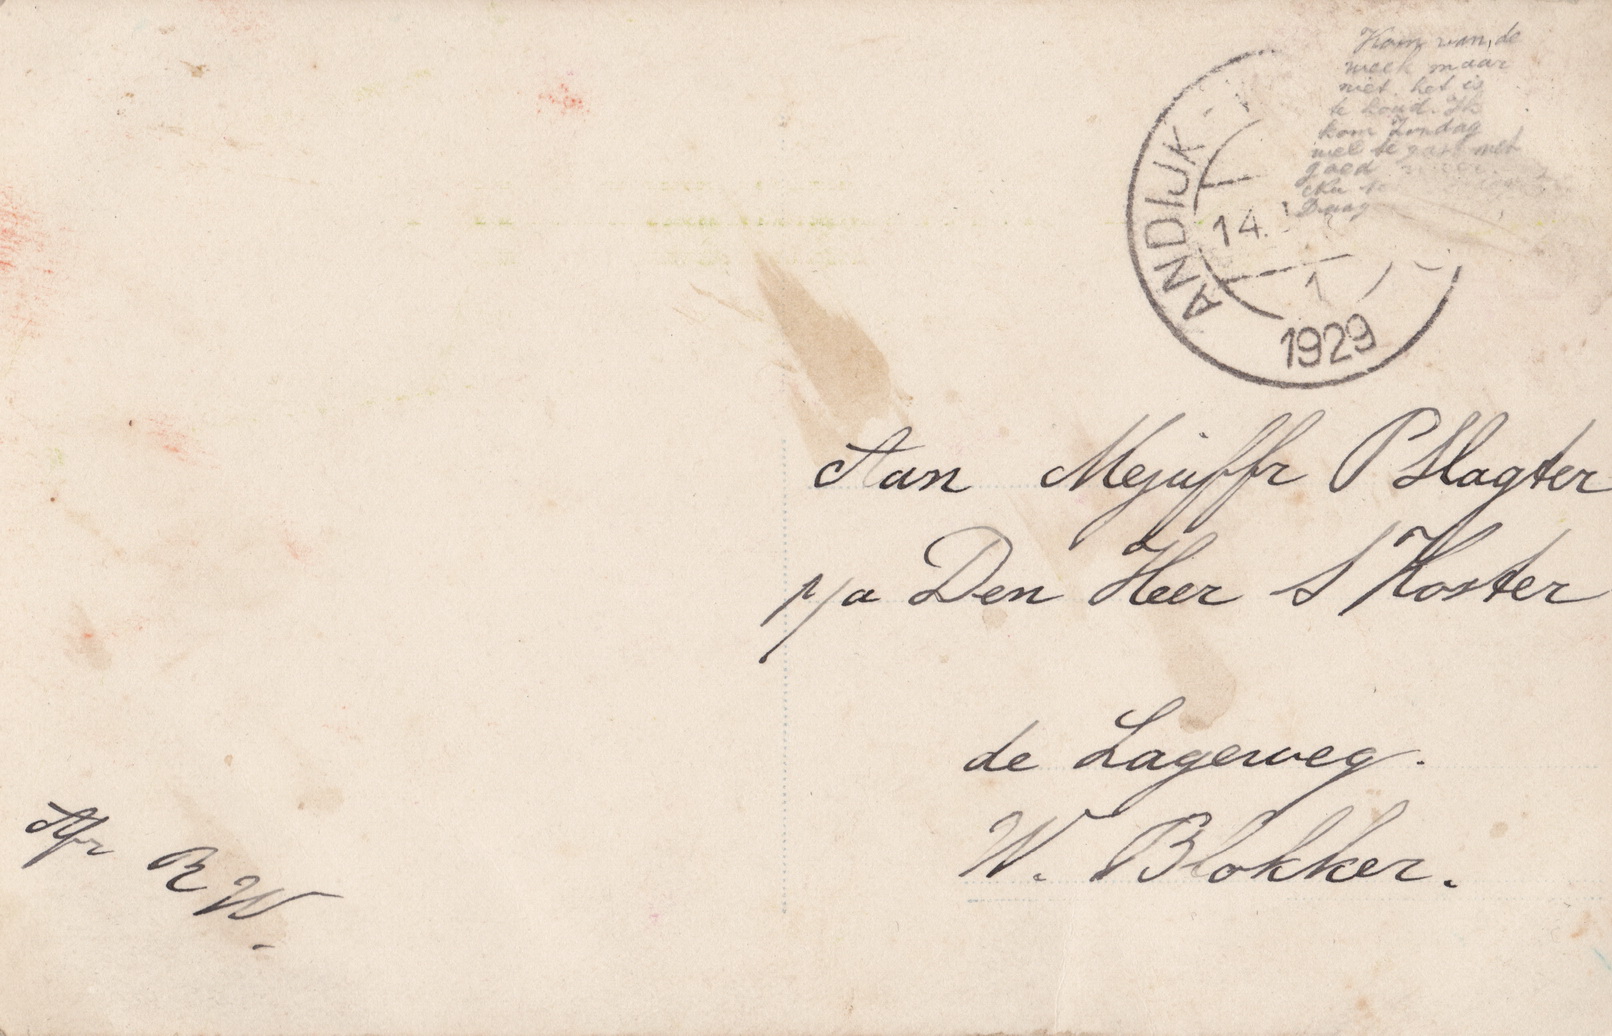 Kom van de
week maar
niet het is
te koud. Ik
kom Zondag
wel te gast met
goed
Daag
ANDIJK -
14.
1
1929
Aan Mejuffr P Slagter
p/a Den Heer S Koster
de Lageweg.
W. Blokker.
Afr R W.